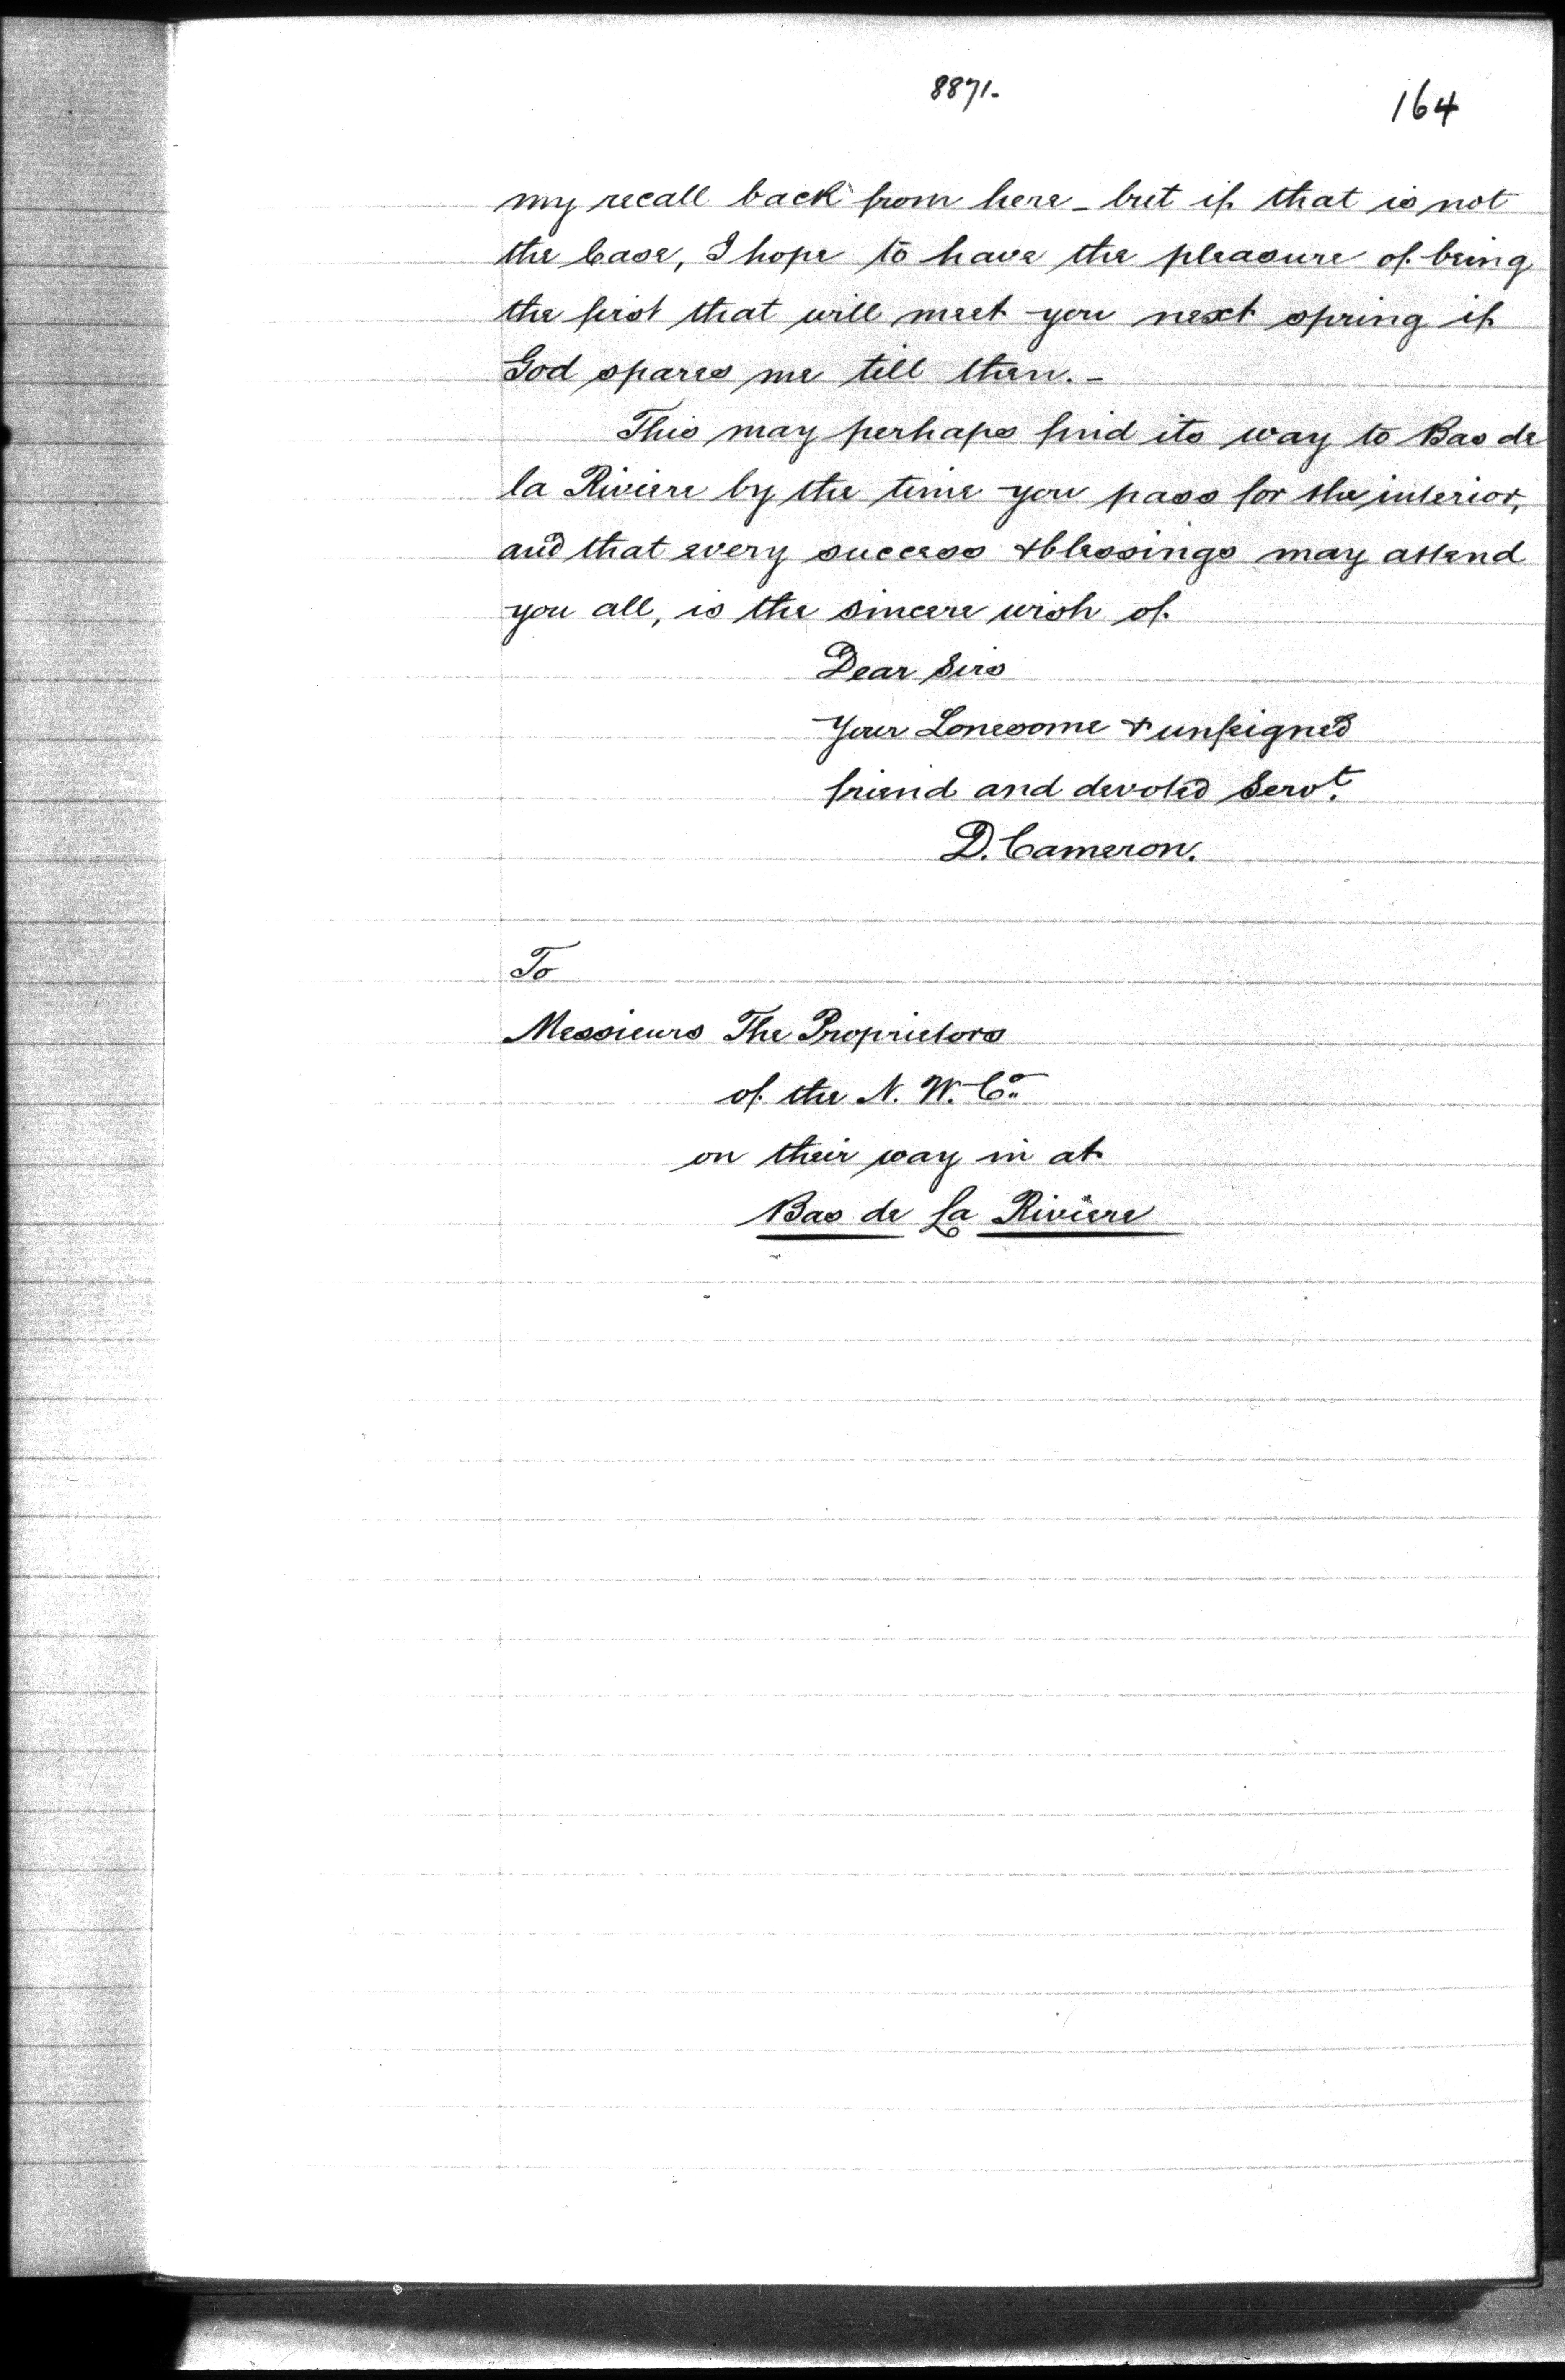 8871.
164
my recall back from here - but if that is not
the Case, I hope to have the pleasure of being
the first that will meet you next spring if
God spares me till then. -
This may perhaps find its way to Bas de
la Riviere by the time you pass for the interior,
and that every success & blessings may attend
you all, is the sincere wish of
Dear Sirs
Your Lonesome & unfeigned
friend and devoted Servt.
D. Cameron.
To
Messieurs The Proprietors
of the N. W. Co.
on their way in at
Bas de La Riviere